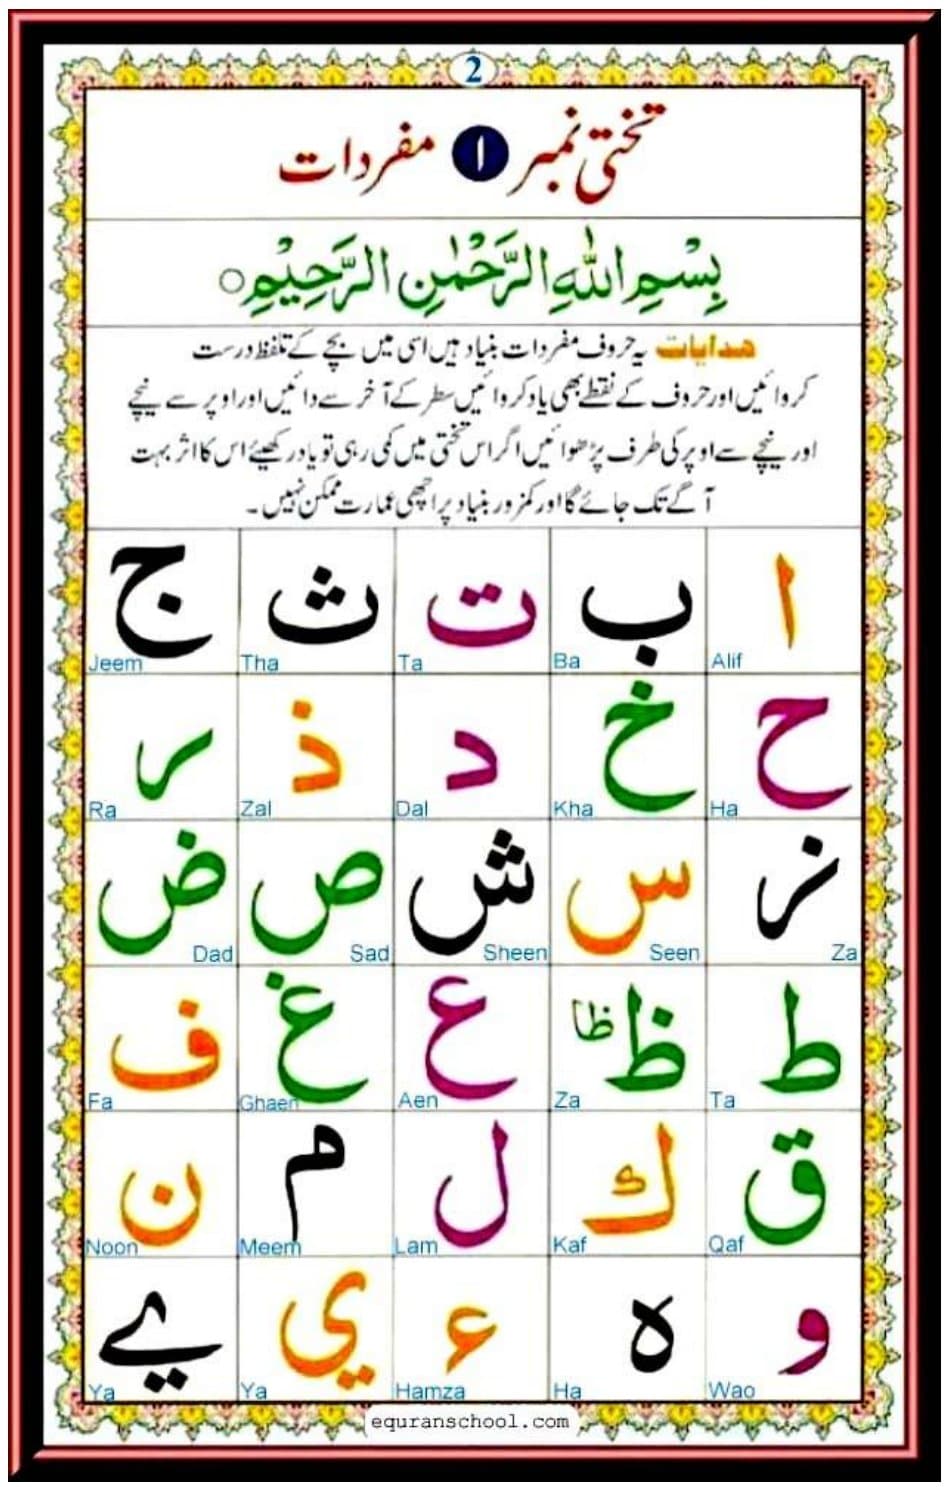 2
تختی نمبر ۱ مفردات
بِسْمِ اللهِ الرَّحْمٰنِ الرَّحِيْمِ○
هدایات یہ حروف مفردات بنیاد ہیں اسی میں بچے کے تلفظ درست
کروائیں اور حروف کے نقطے بھی یاد کروائیں سطر کے آخر سے دائیں اور اوپر سے نیچے
اور نیچے سے اوپر کی طرف پڑھوائیں اگر اس تختی میں کمی رہی تو یاد رکھیئے اس کا اثر بہت
آگے تک جائے گا اور کمزور بنیاد پر اچھی عمارت ممکن نہیں ۔
ا ب ت ث ج
Alif Ba Ta Tha Jeem
ح خ د ذ ر
Ha Kha Dal Zal Ra
ز س ش ص ض
Za Seen Sheen Sad Dad
ط ظ ظا ع غ ف
Ta Za Aen Ghaen Fa
ق ك ل م ن
Qaf Kaf Lam Meem Noon
و ه ء ي ے
Wao Ha Hamza Ya Ya
equranschool.com